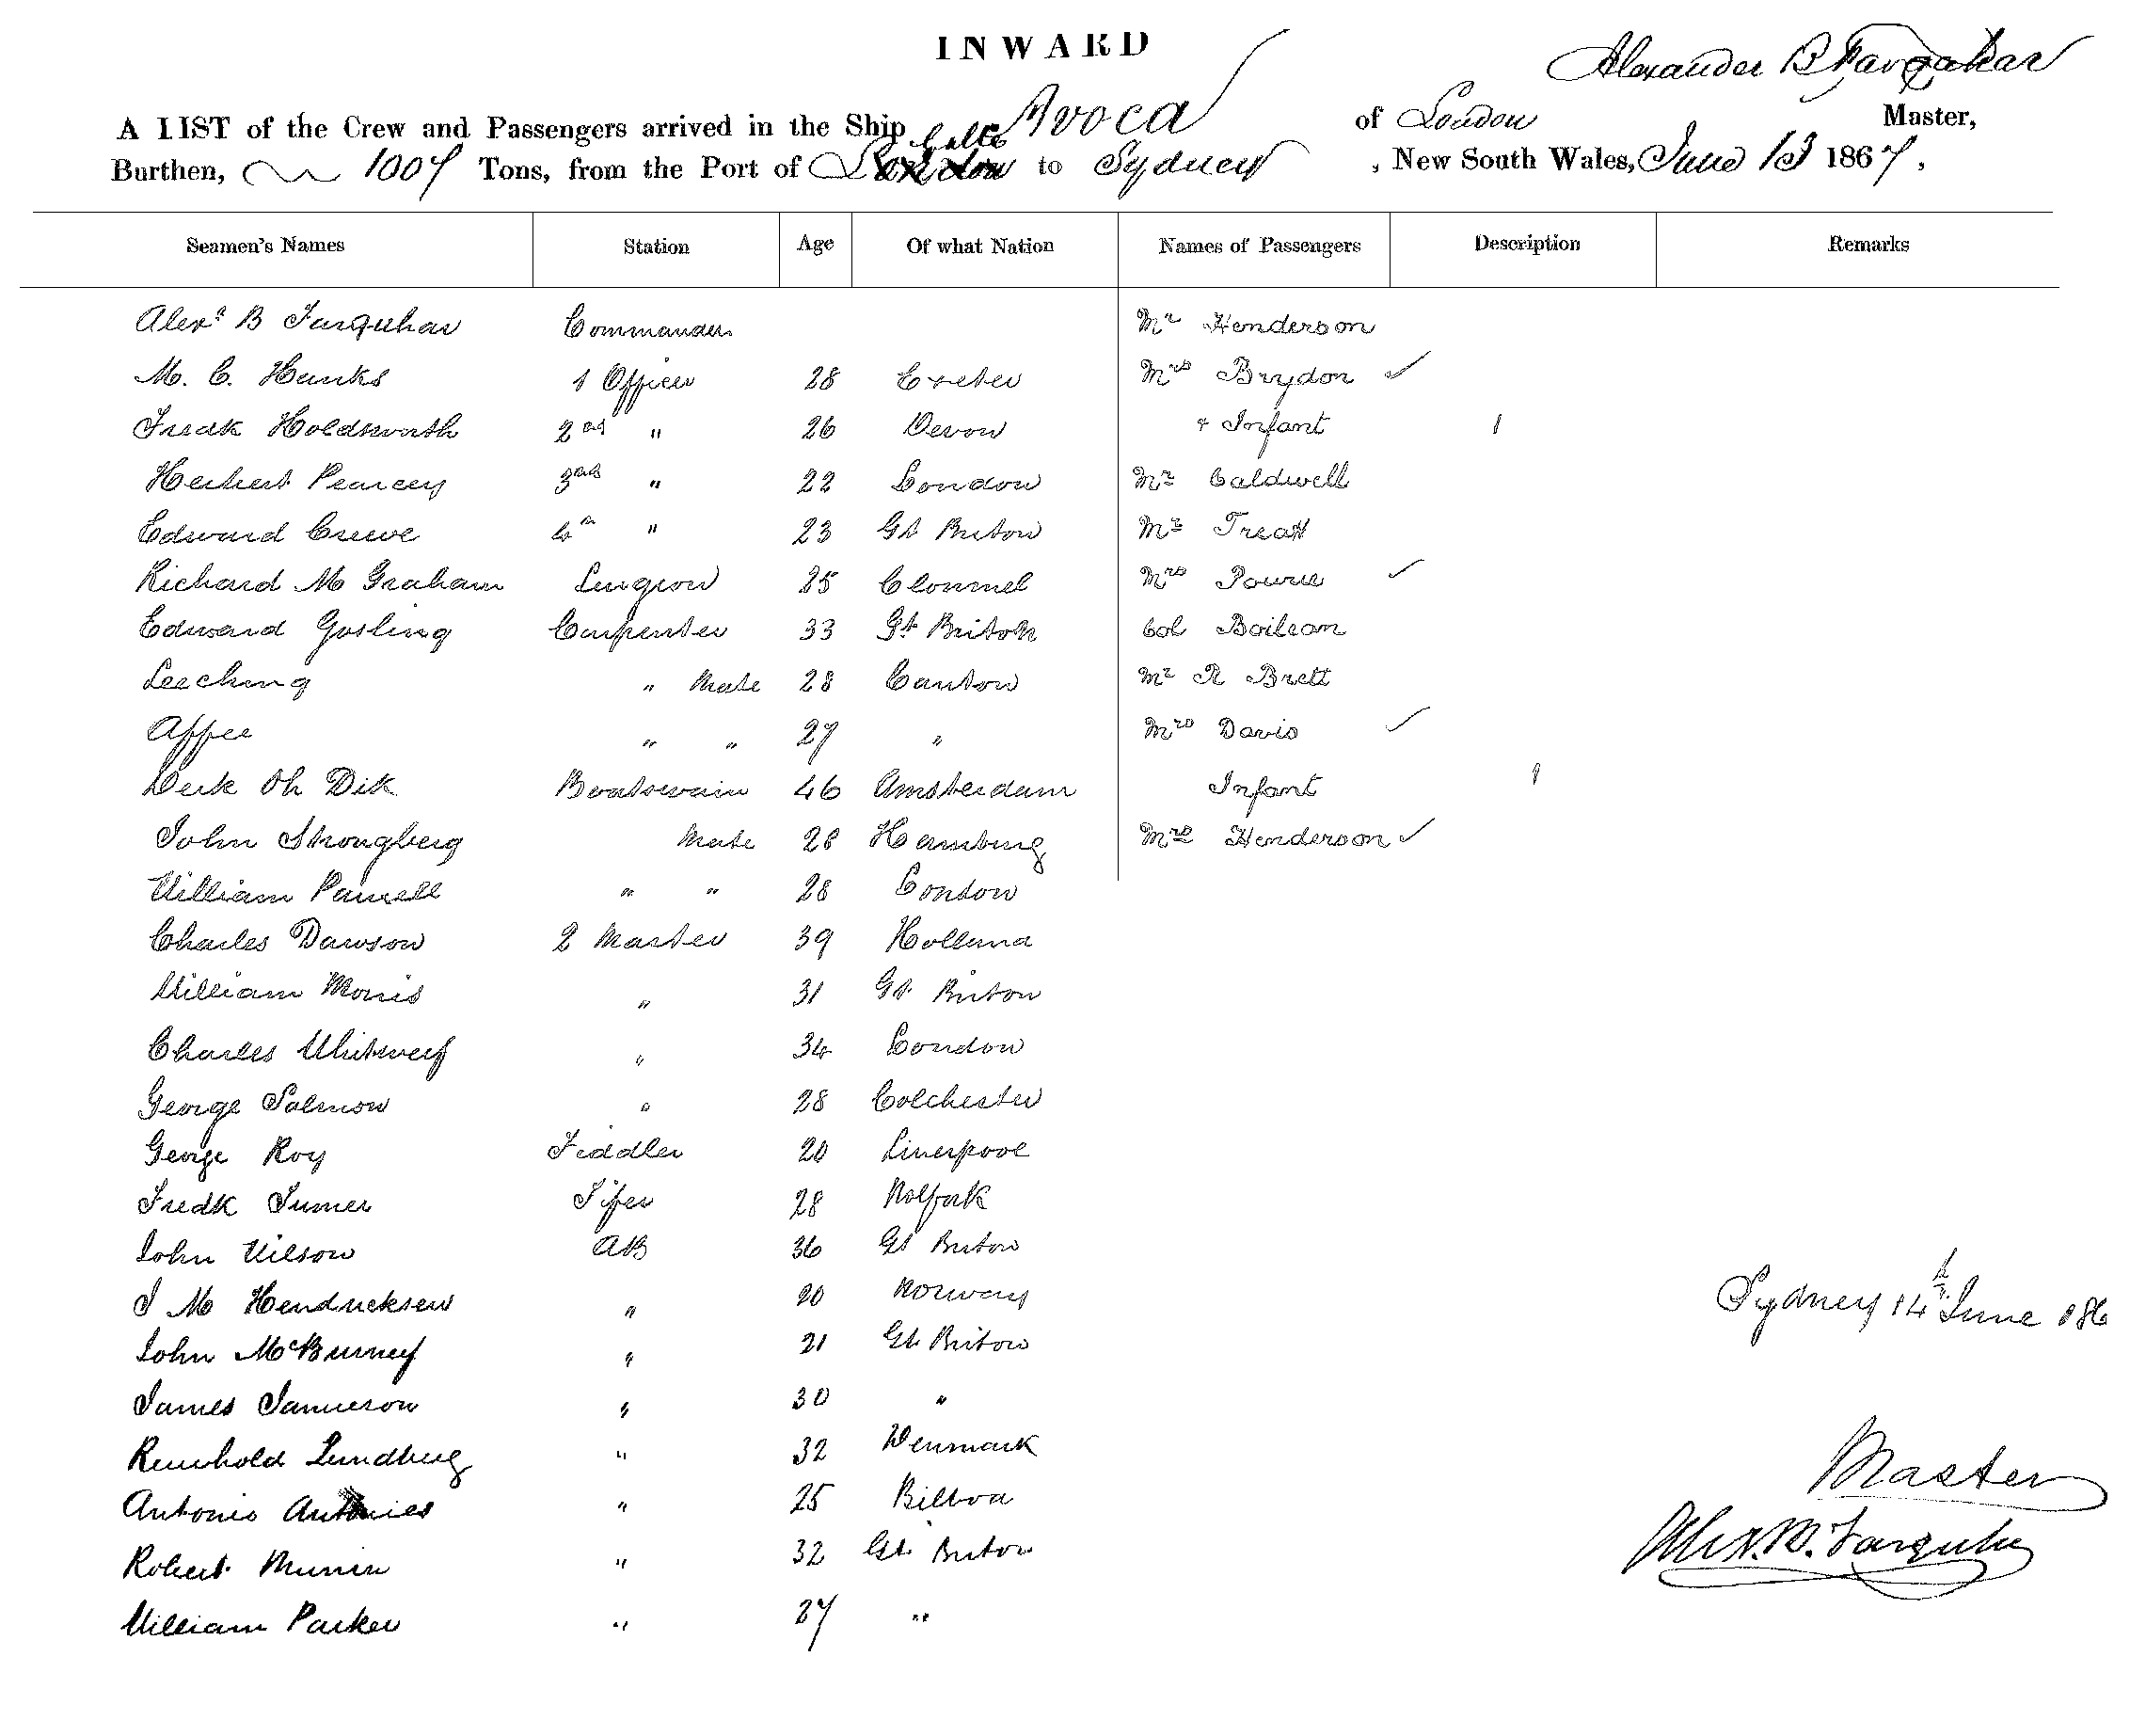 INWARD
Alexander B Farquhar
A LIST of the Crew and Passengers arrived in the Ship Avoca of London Master,
Galle
Burthen, 1007 Tons, from the Port of to Sydney , New South Wales, June 13 1867,
Seamen's Names Station Age Of what Nation Names of Passengers Description Remarks
Alexr B Farquhar Commander Mr Henderson
M. C. Hanks 1 Officer 28 Exeter Mrs Brydon ✓
Fredk Holdsworth 2nd " 26 Devon & Infant 1
Herbert Pearcey 3rd " 22 London Mr Caldwell
Edward Crewe 4th " 23 Gt Briton Mr Treatt
Richard M Graham Surgeon 25 Clonmel Mrs Powrie ✓
Edward Gosling Carpenter 33 Gt Briton Col Boileau
Leeching " Mate 28 Canton Mr R Brett
Affee " " 27 " Mrs Davis ✓
Derk Oh Dik Boatswain 46 Amsterdam Infant 1
John Strongberg Mate 28 Hamburg Mrs Henderson ✓
William Parnell " " 28 London
Charles Dawson 2 Master 39 Holland
William Morris " 31 Gt Briton
Charles " 34 London
George Salmon " 28 Colchester
George Roy Fiddler 20 Liverpool
Fredk Turner Fifer 28 Nolfork
John Wilson AB 36 Gt Briton
J M Hendricksen " 20 Norway
Sydney 14th June 186
John McBurney " 21 Gt Briton
James Jamieson " 30 "
Reinhold Lundberg " 32 Denmark
Master
Antonio " 25 Bilboa
Alex. B. Farquhar
Robert " 32 Gt Briton
William Parker " 27 "